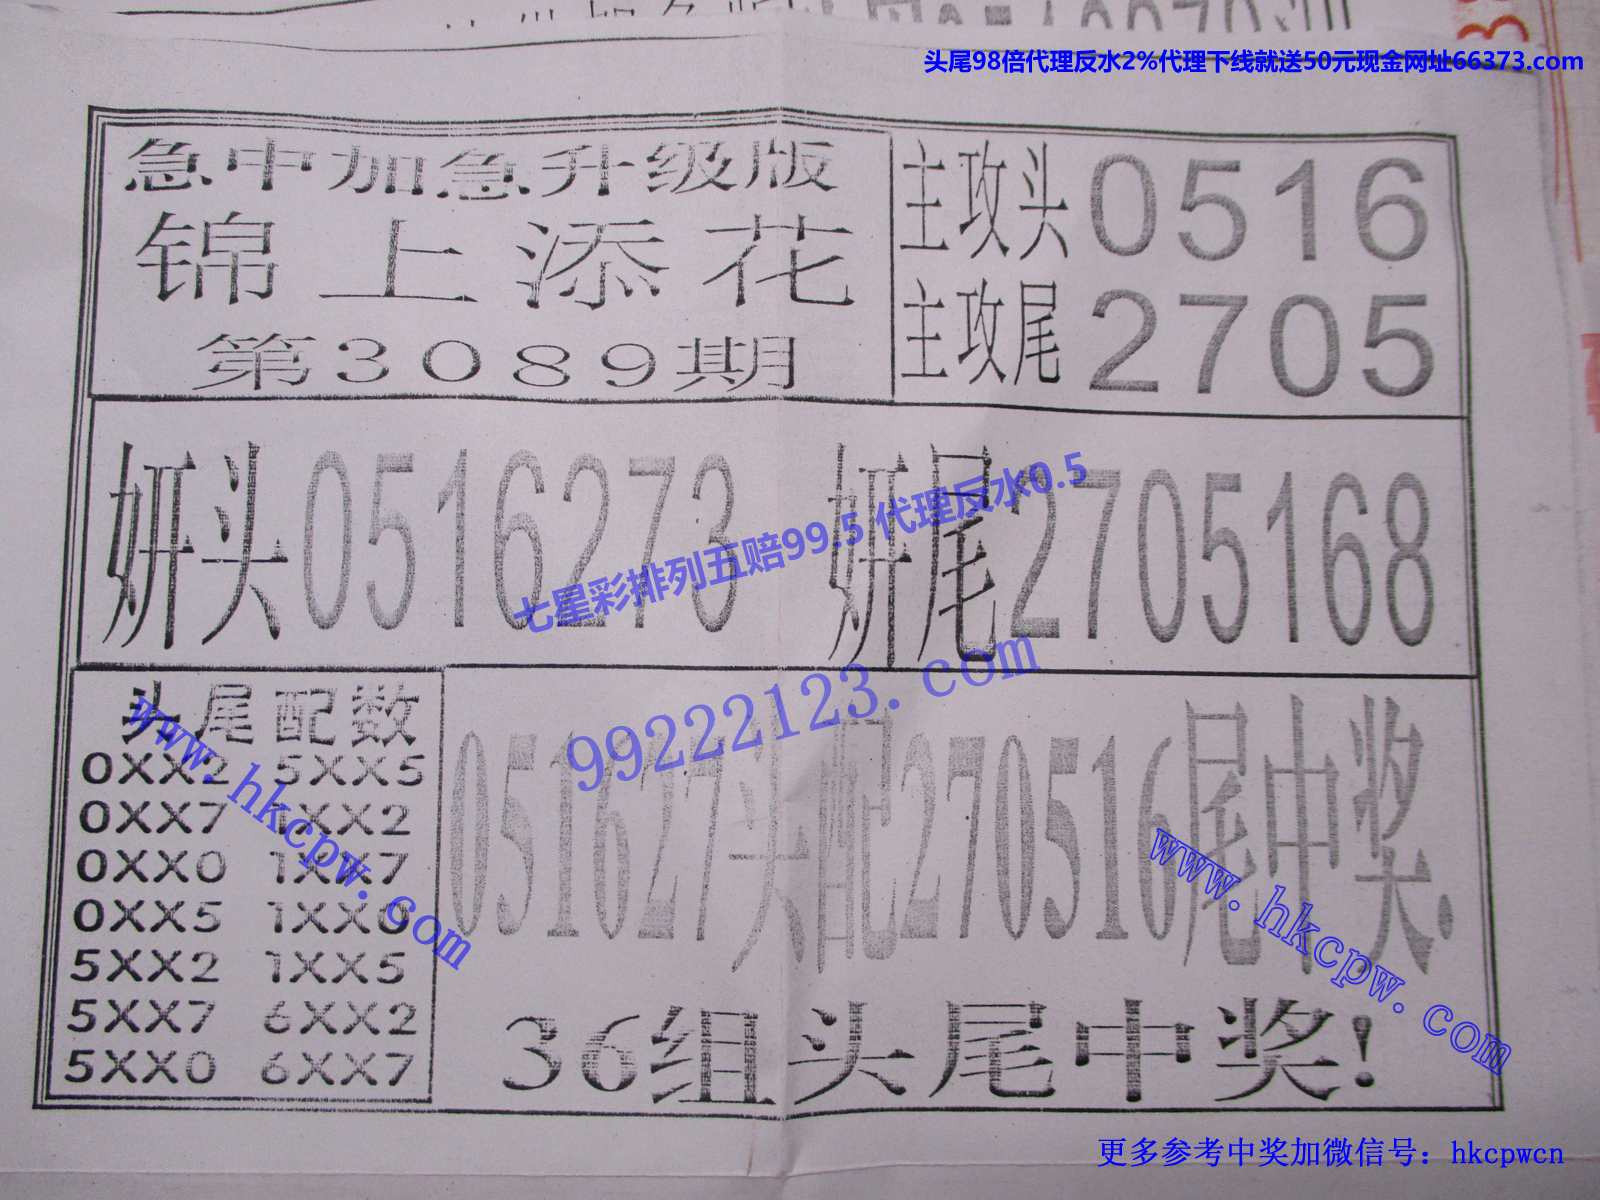 头尾98倍代理反水2%代理下线就送50元现金网址66373.com
急中加急升级版
锦上添花
第3089期
主攻头0516
主攻尾2705
妍头0516273
妍尾2705168
七星彩排列五赔99.5 代理反水0.5
99222123.com
头尾配数
0XX2 5XX5
0XX7 1XX2
0XX0 1XX7
0XX5 1XX0
5XX2 1XX5
5XX7 6XX2
5XX0 6XX7
www.hkcpw.com
051627头配270516尾中奖.
www.hkcpw.com
36组头尾中奖!
更多参考中奖加微信号：hkcpwcn